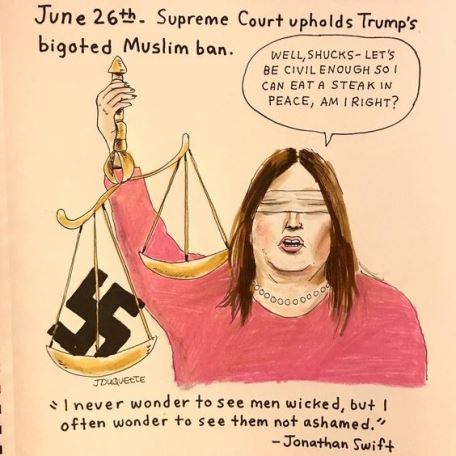 June 26th- Supreme Court upholds Trump's
bigoted Muslim ban.
WELL, SHUCKS- LET'S
BE CIVIL ENOUGH SO I
CAN EAT A STEAK IN
PEACE, AM I RIGHT?
JDUQUETTE
"I never wonder to see men wicked, but I
often wonder to see them not ashamed."
-Jonathan Swift